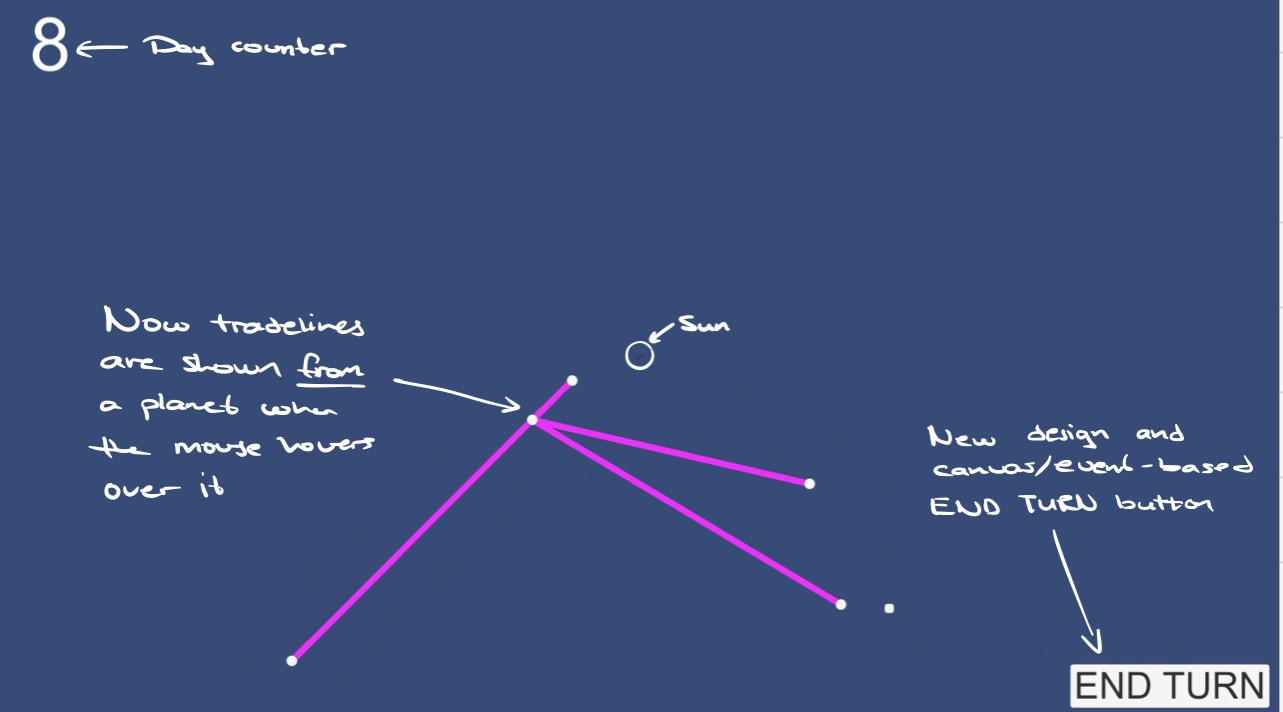 8 ← Day counter
Sun
Now tradelines
are shown from
a planet when
the mouse hovers
over it
New design and
canvas/event-based
END TURN button
END TURN